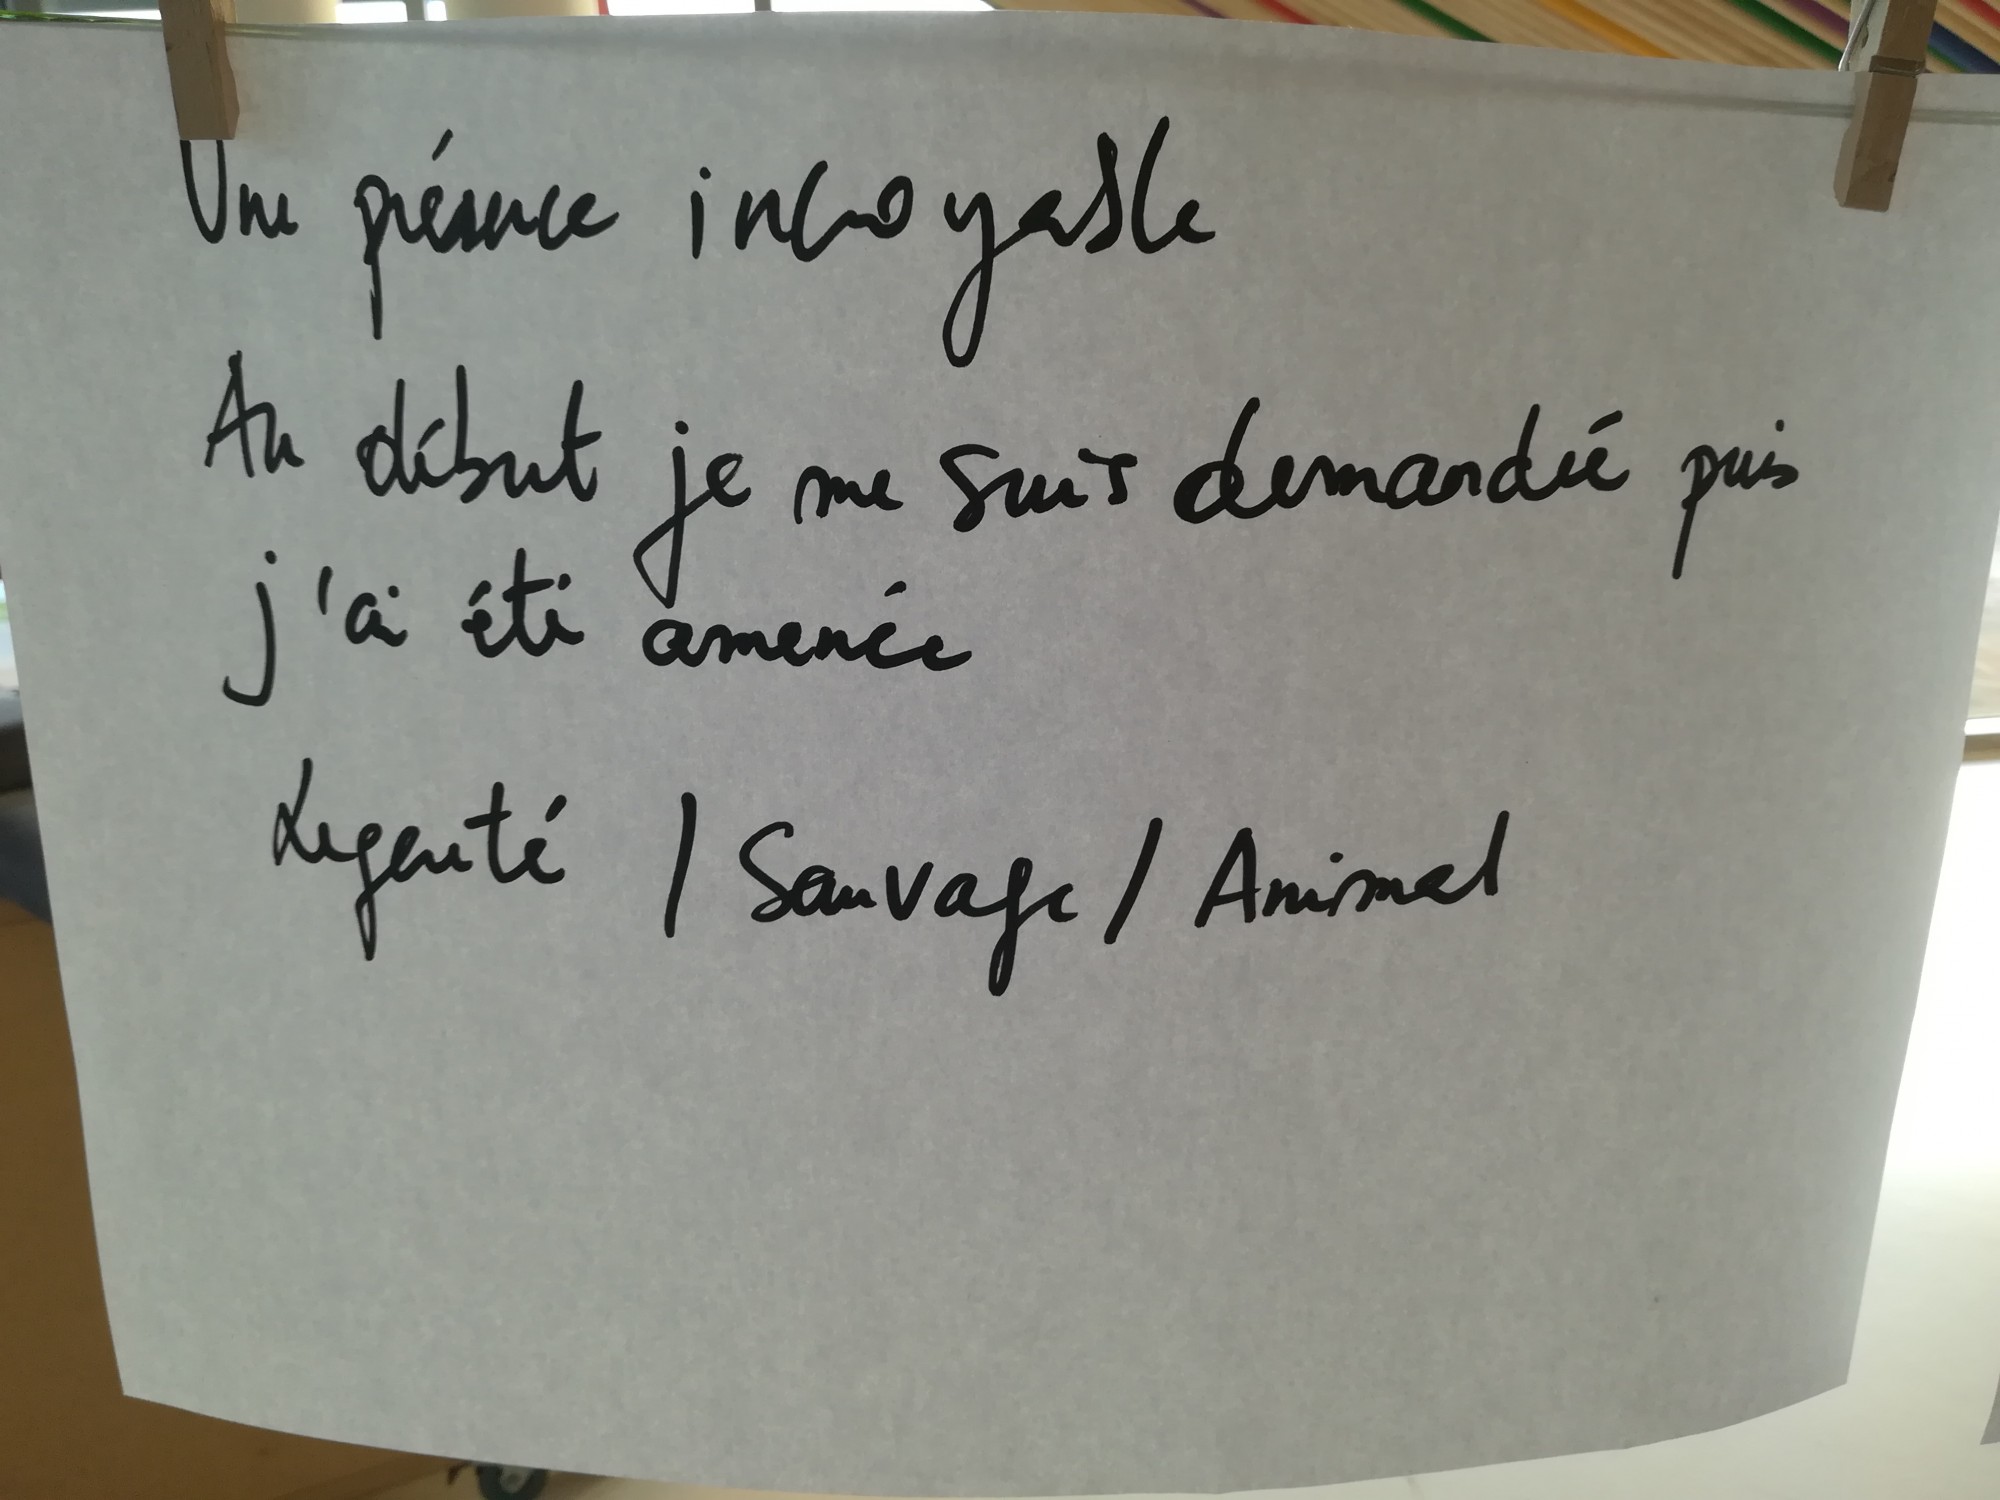 Une présence incroyable
Au début je me suis demandée puis
j'ai été amenée
Legerté / Sauvage / Animal